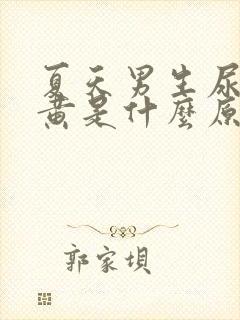 夏天男生尿
黄是什麼原
郭家坝